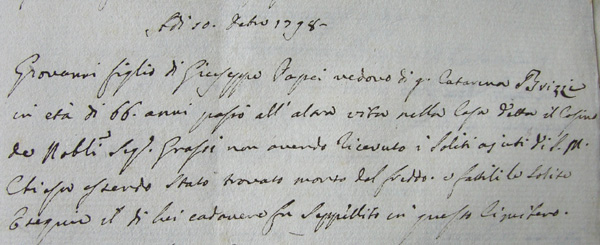 Adi 10. Xbre 1798
Giovanni figlio di Giuseppe Papei vedovo di q. Catarina Brizzi
in età di 66. anni passò all'altra vita nella Casa detta il Casino
de Nobli Sigri. Grassi non avendo ricevuto i soliti ajuti di S. M.
Chiesa essendo stato trovato morto dal freddo. e fattili le solite
Esequie il di lui cadavere fu seppellito in questo Cimitero.